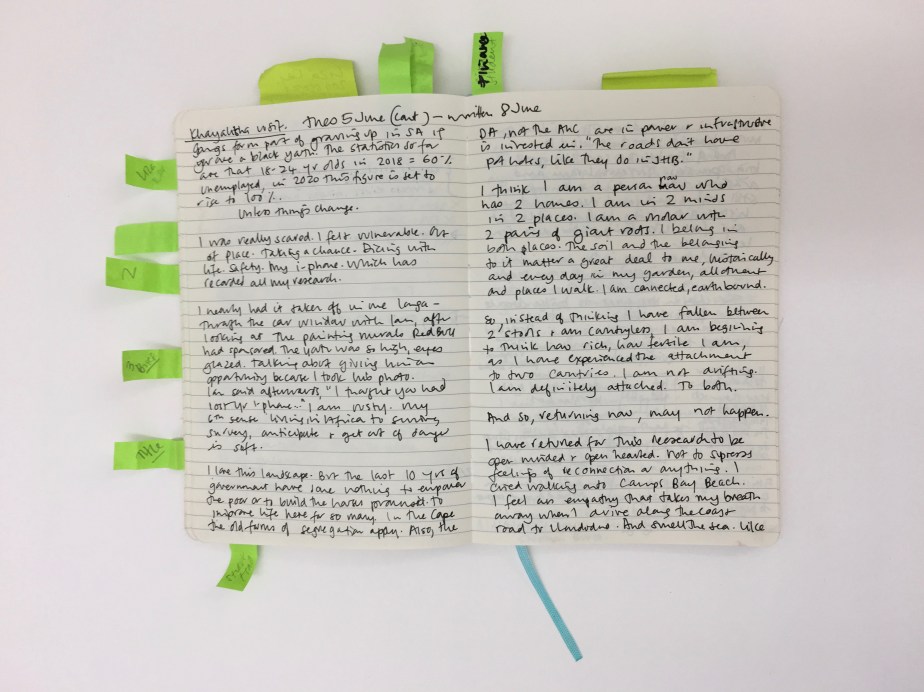 Khayalitsha visit. Theo 5 June (cont) – written 8 June
Gangs form part of growing up in SA if
you are a black youth. The statistics so far
are that 18-24 yr olds in 2018 = 60%
unemployed, in 2020 this figure is set to
rise to 100%.
Unless things change.
I was really scared. I felt vulnerable. Out
of place. Taking a chance. Dicing with
life. Safety. My i-phone. Which has
recorded all my research.
I nearly had it taken off me in Langa –
through the car window with Ian, after
looking at the painting murals Red Bull
had sponsored. The youth was so high, eyes
glazed. Talking about giving him an
opportunity because I took his photo.
Ian said afterwards, "I thought you had
lost yr i-phone..." I am rusty. My
6th sense living in Africa to
survey, anticipate + get out of danger
is soft.
I love this landscape. But the last 10 yrs of
government have done nothing to empower
the poor or to build the houses promised. To
improve life here for so many. In the Cape
the old forms of segregation apply. Also, the
DA, not the ANC, are in power + infrastructure
is invested in. "The roads don't have
potholes, like they do in JHB."
I think I am a person now who
has 2 homes. I am in 2 minds
in 2 places. I am a molar with
2 pairs of giant roots. I belong in
both places. The soil and the belonging
to it matter a great deal to me, historically
and every day in my garden, allotment
and places I walk. I am connected, earthbound.
So instead of thinking I have fallen between
2 stools + am countryless, I am beginning
to think how rich, how fertile I am,
as I have experienced the attachment
to two countries. I am not drifting.
I am definitely attached. To both.
And so, returning now, may not happen.
I have returned for this research to be
open minded + open hearted. Not to supress
feelings of reconnection or anything. I
cried walking onto Camps Bay Beach.
I feel an empathy that takes my breath
away when I drive along the coast
road to Llundudno. And smell the sea. Like